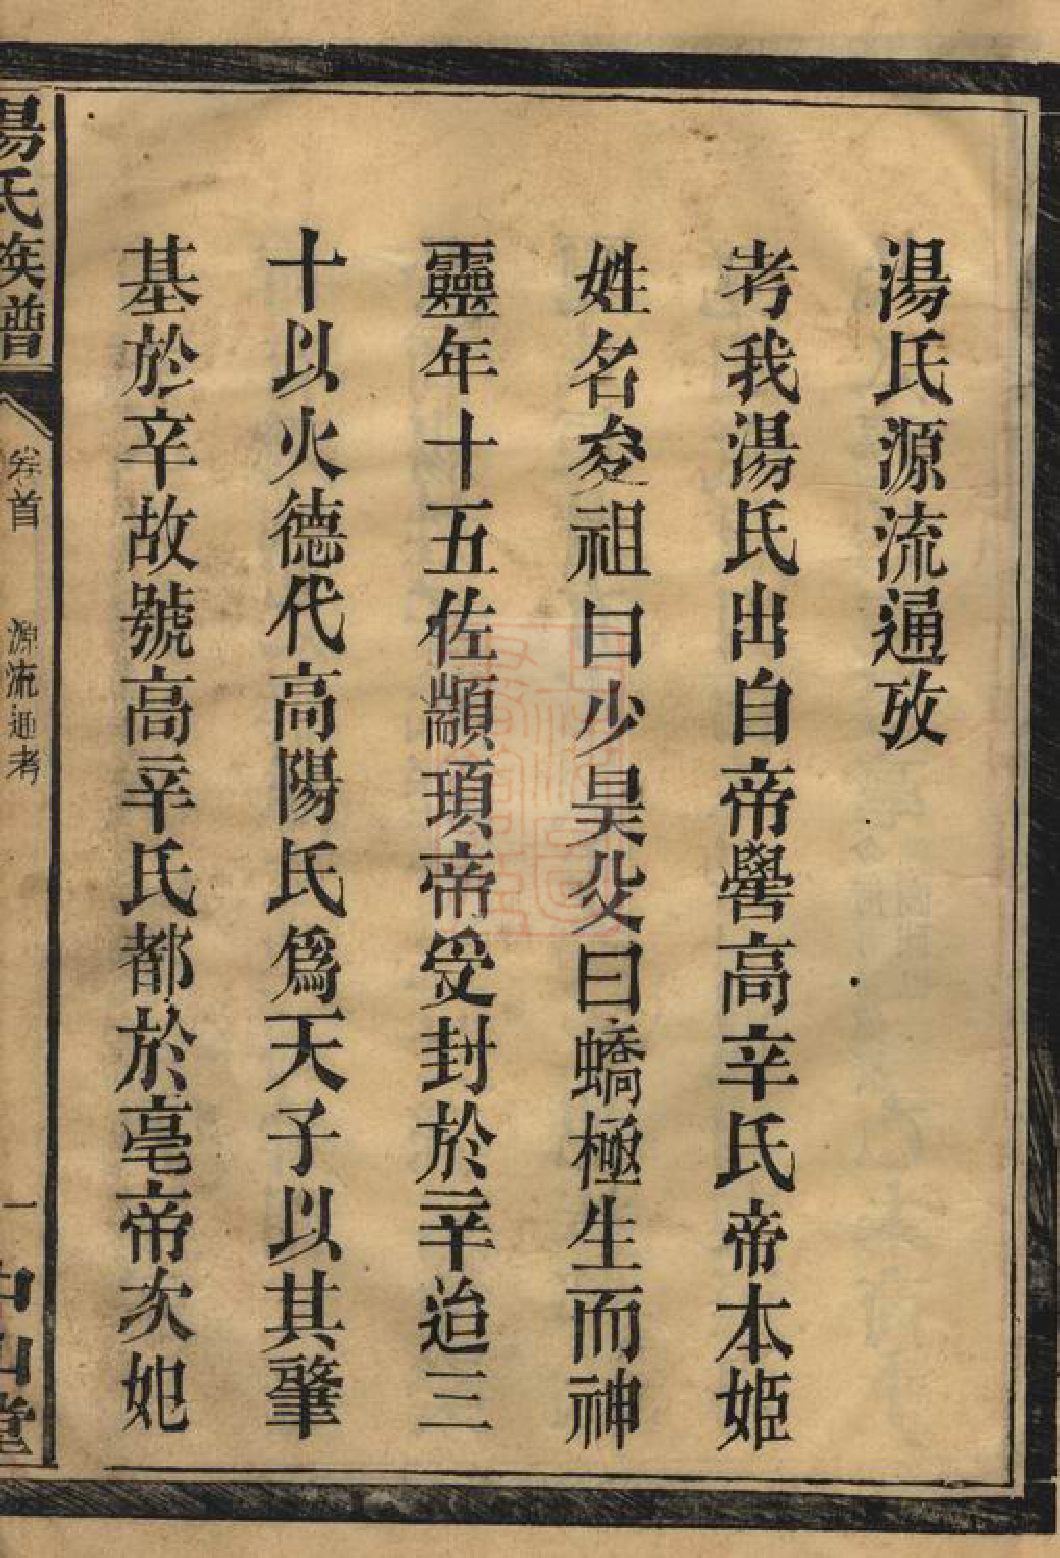 湯氏源流通攷
考我湯氏出自帝嚳高辛氏帝本姬
姓名夋祖曰少昊父曰蟜極生而神
靈年十五佐顓頊帝受封於辛迨三
十以火德代高陽氏爲天子以其肇
基於辛故號高辛氏都於亳帝次妃
湯氏族譜
卷首
源流通考
一
中山堂